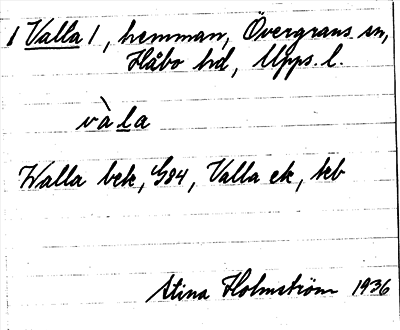 1 Valla 1, hemman, Övergrans sn,
Håbo hd, Upps. l.
vàla
Walla bek, G84, Valla ek, kb
Stina Holmström 1936